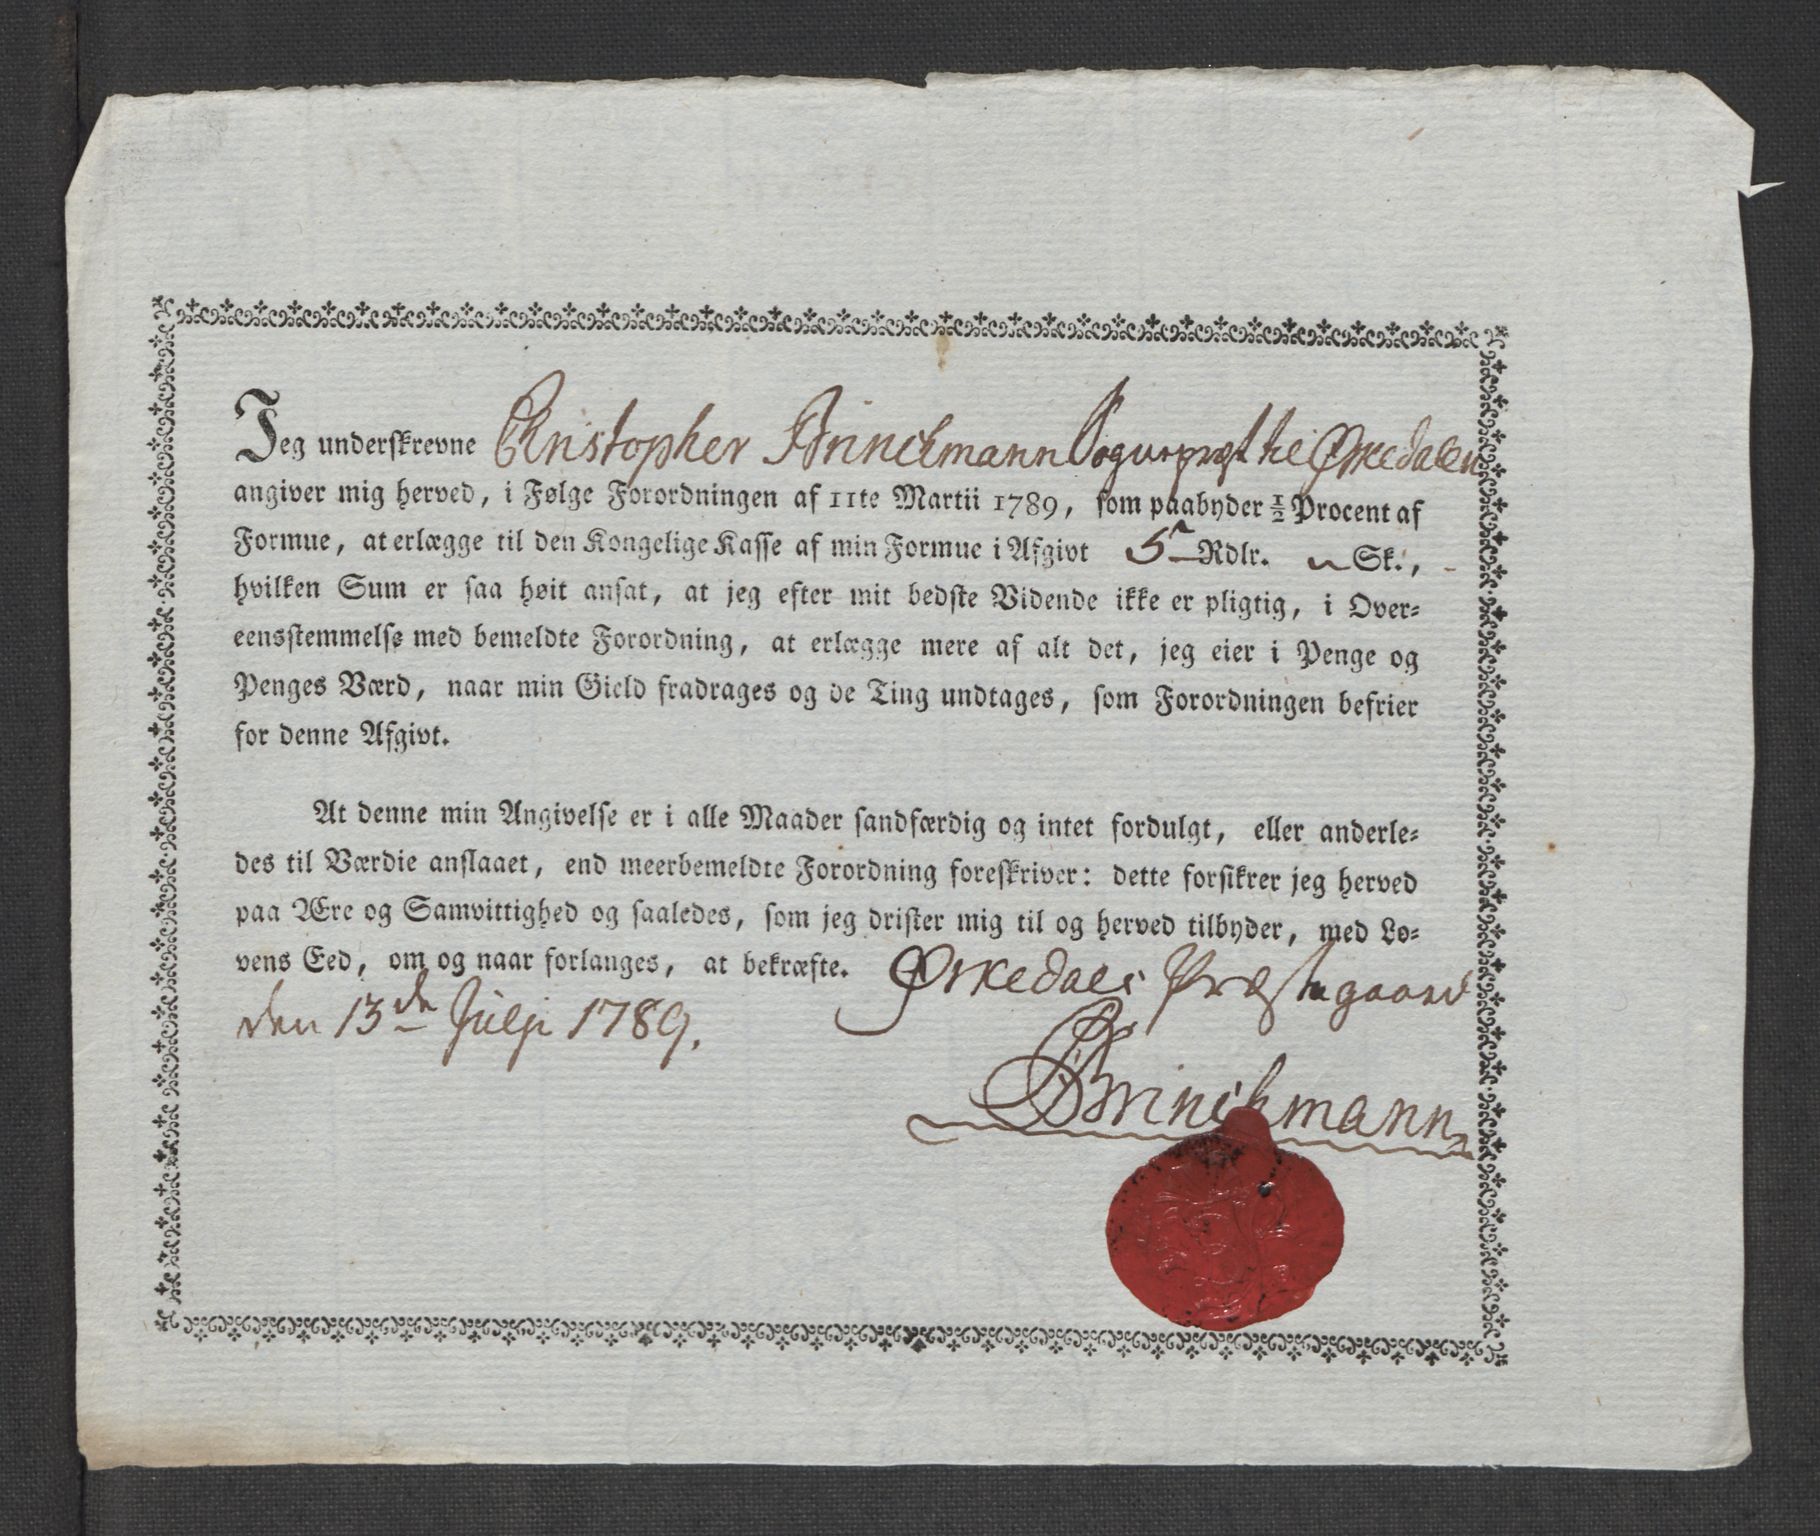 Jeg underskrevne Christopher Brinckmann Sognepræst til Ørkedalen
angiver mig herved, i Følge Forordningen af 11te Martii 1789, som paabyder ½ Procent af
Formue, at erlægge til den Kongelige Kasse af min Formue i Afgivt 5 Rdlr. " Sk.,
hvilken Sum er saa høit ansat, at jeg efter mit bedste Vidende ikke er pligtig, i Over-
eensstemmelse med bemeldte Forordning, at erlægge mere af alt det, jeg eier i Penge og
Penges Værd, naar min Gield fradrages og de Ting undtages, som Forordningen befrier
for denne Afgivt.
At denne min Angivelse er i alle Maader sandfærdig og intet fordulgt, eller anderle-
des til Værdie anslaaet, end meerbemeldte Forordning foreskriver: dette forsikrer jeg herved
paa Ære og Samvittighed og saaledes, som jeg drister mig til og herved tilbyder, med Lo-
vens Eed, om og naar forlanges, at bekræfte. Ørkedals Præstegaard
den 13de Julji 1789.
CBrinckmann